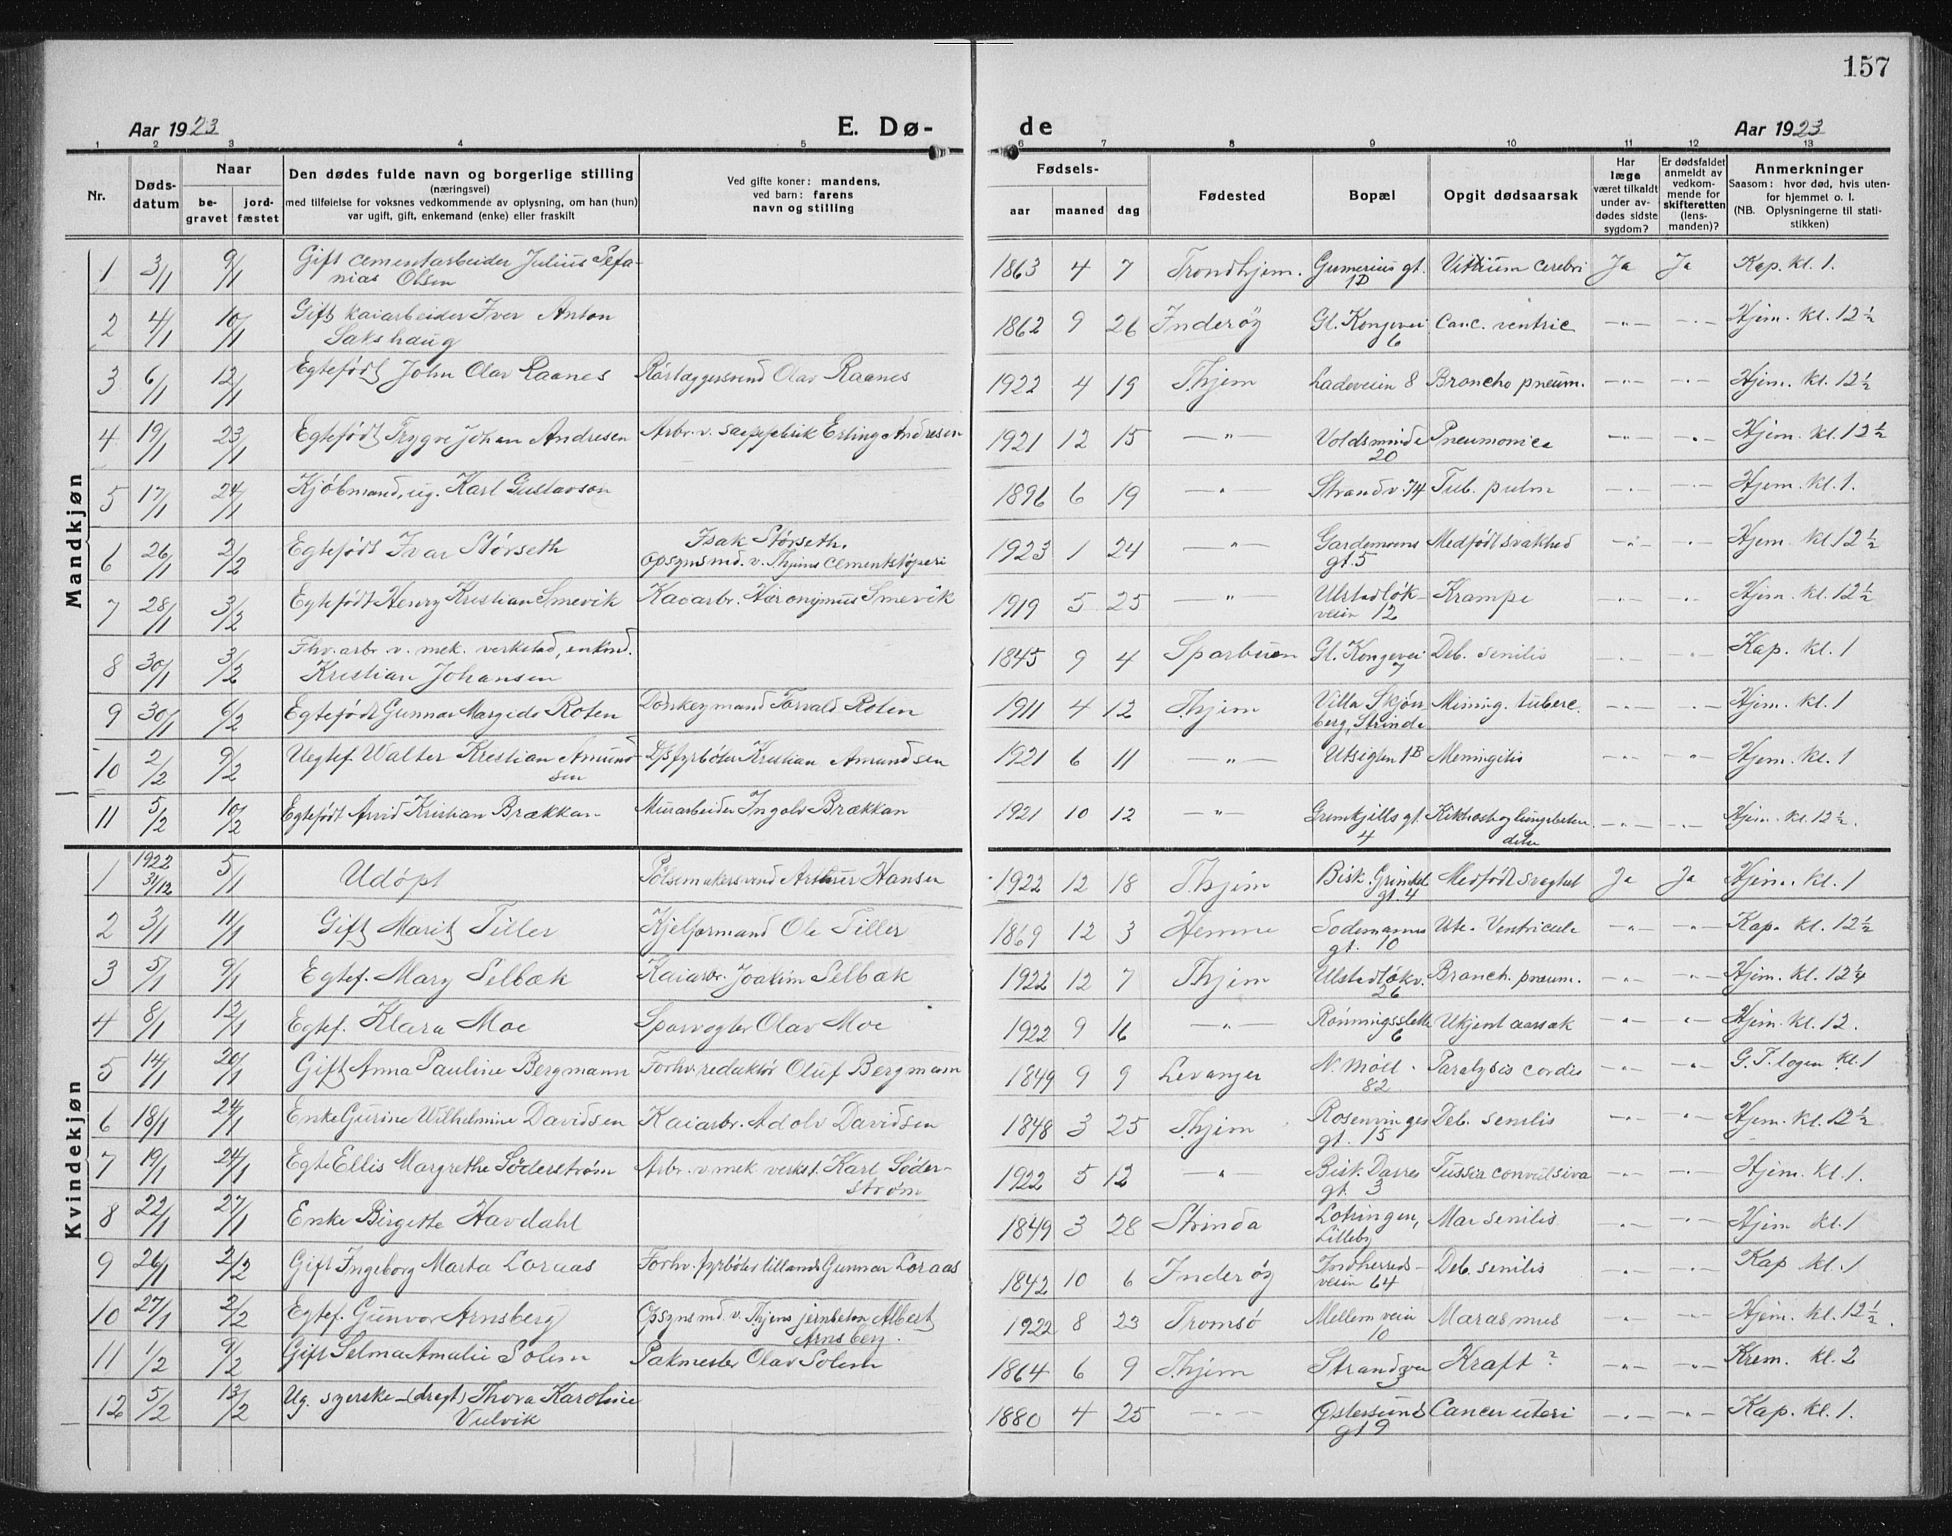 157
Aar 1923
E. Dø-
de
Aar 1923
1 2 3 4 5 6 7 8 9 10 11 12 13
Nr. Døds-datum Naar be-gravet jord-fæstet Den dødes fulde navn og borgerlige stilling (næringsvei) med tilføielse for voksnes vedkommende av oplysning, om han (hun) var ugift, gift, enkemand (enke) eller fraskilt Ved gifte koner: mandens, ved barn: farens navn og stilling Fødsels- aar maaned dag Fødested Bopæl Opgit dødsaarsak Har læge været tilkaldt under av-dødes sidste sygdom? Er dødsfaldet anmeldt av vedkom-mende for skifteretten (lens-manden)? Anmerkninger Saasom: hvor død, hvis uten-for hjemmet o. l. (NB. Oplysningerne til stati-stikken)
Mandkjøn
1 3/1 9/1 Gift cementarbeider Julius Sefa-nias Olsen 1863 4 7 Trondhjem. Gumerius gt. 1D Vitium cerebri Ja Ja Kap. kl. 1.
2 4/1 10/1 Gift kaiarbeider Iver Anton Sakshaug 1862 9 26 Inderøy Gl. Kongevei 6 Canc. ventric -"- -"- Hjem. kl. 12 ½
3 6/1 12/1 Egtefødt John Olav Raanes Rørlæggersvend Olav Raanes 1922 4 19 Thjem Ladeveien 8 Broncho pneum. -"- -"- Hjem. kl. 12 ½
4 19/1 23/1 Egtefødt Trygve Johan Andresen Arbr. v. saapefabrik Erling Andresen 1921 12 15 -"- Voldsminde 20 Pneumonica -"- -"- Hjem. kl. 12 ½
5 17/1 24/1 Kjøbmand, ug. Karl Gustavson 1896 6 19 -"- Strandv. 74 Tub. pulm -"- -"- Hjem. kl. 1.
6 26/1 2/2 Egtefødt Ivar Størseth Isak Størseth. opsynsmd. v. Thjems cementstøperi 1923 1 24 -"- Gardemoens gt. 5 Medfødt svakhed -"- -"- Hjem. kl 12 ½
7 28/1 3/2 Egtefødt Henry Kristian Smevik Kaiarbr. Hieronymus Smevik 1919 5 25 -"- Ulstadløk-veien 12 Krampe -"- -"- Hjem. kl. 12 ½
8 30/1 3/2 Fhv. arbr. v. mek. verksted, enkmd. Kristian Johansen 1845 9 4 Sparbuen Gl. Kongevei 7 Deb. senilis -"- -"- Kap. kl. 1
9 30/1 6/2 Egtefødt Gunnar Margido Roten Donkeymand Torvald Roten 1911 4 12 Thjem Villa Skjøn-berg, Strinda Mening. tuberc. -"- -"- Hjem. kl. 1
10 2/2 9/2 Uegtef. Walter Kristian Amund-sen Lpsfyrbøter Kristian Amundsen 1921 6 11 -"- Utsigten 1B Meningitis -"- -"- Hjem. kl. 1
11 5/2 10/2 Egtefødt Arvid Kristian Brækkan Murarbeider Ingolv Brækkan 1921 10 12 -"- Gremkjills gt. 4 Kikhost og lungebeten-delse -"- -"- Hjem. kl. 12 ½.
Kvindekjøn
1 1922 31/12 5/1 Udøpt Pølsemakersvend Arthur Hansen 1922 12 18 Thjem Bisk. Grimkel gt. 4 Medfødt svaghet Ja Ja Hjem. kl. 1
2 3/1 11/1 Gift Marit Tiller Kjelformand Ole Tiller 1869 12 3 Hemne Sodemanns gt. 10 Ulc. Ventricule -"- -"- Kap. kl. 12 ½
3 5/1 9/1 Egtef. Mary Selbæk Kaiarbr. Joakim Selbæk 1922 12 7 Thjem Ulstadløkv. 26 Bronch. pneum. -"- -"- Hjem. kl. 12 ¼
4 8/1 12/1 Egtef. Klara Moe Sporvogter Olav Moe 1922 9 16 -"- Rønningsslette 6 Ukjent aarsak -"- -"- Hjem. kl. 12.
5 14/1 20/1 Gift Anna Pauline Bergmann Forhv. redaktør Oluf Bergmann 1849 9 9 Levanger N. Møll. 82 Paralysis cordis -"- -"- G. T. logen kl. 1
6 18/1 24/1 Enke Gurine Wilhelmine Davidsen Kaiarbr. Adolv Davidsen 1848 3 25 Thjem Rosenvinges gt. 15 Deb. senilis -"- -"- Hjem. kl. 12 ½
7 19/1 24/1 Egte Ellis Margrethe Söderstrøm Arbr. v mek verkst. Karl Söder-strøm 1922 5 12 -"- Bisk. Darres gt. 3 Tussia convulsiva -"- -"- Hjem. kl. 1.
8 22/1 27/1 Enke Birgitte Havdahl 1849 3 28 Strinda Lotringen, Lilleby Mar senilis -"- -"- Hjem kl. 1
9 26/1 2/2 Gift Ingeborg Marta Loraas Forhv. fyrbøter tillands Gunnar Loraas 1842 10 6 Inderøy Indherreds-veien 64 Deb. senilis -"- -"- Kap. kl. 1
10 27/1 2/2 Egtef. Gunvor Arnsberg Opsynsmd. v. Thjems jernbeton Albert Arnsberg. 1922 8 23 Tromsø Mellemveien 10 Marasmus -"- Hjem. kl. 12 ½.
11 1/2 9/2 Gift Selma Amalie Solem Pakmester Olav Solem 1864 6 9 Thjem Strandvei 3 Kræft? -"- -"- Krem. kl. 2
12 5/2 13/2 Ug. syerske (dragt) Thora Karoline Vulvik 1880 4 25 -"- Østersunds gt 9 Cancer uteri -"- -"- Kap. kl. 1.